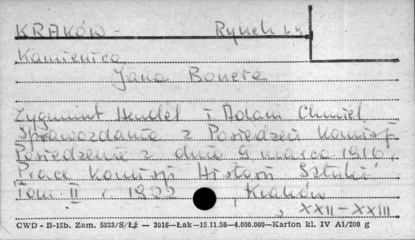 KRAKÓW - Rynek
Kamienica
Jana Bonera
Zygmunt Hendel i Adam Chmiel
Sprawozdanie z Posiedzeń Komisji
Posiedzenie z dnia 9 marca 1916,
Prace Komisji Historii Sztuki
Tom II r 1922, Kraków
, XXII-XXIII
CWD - B-15b. Zam. 5323/S/ŁŻ — 3016-Łak-15.11.56-4.000.000-Karton kl. IV A1/200 g